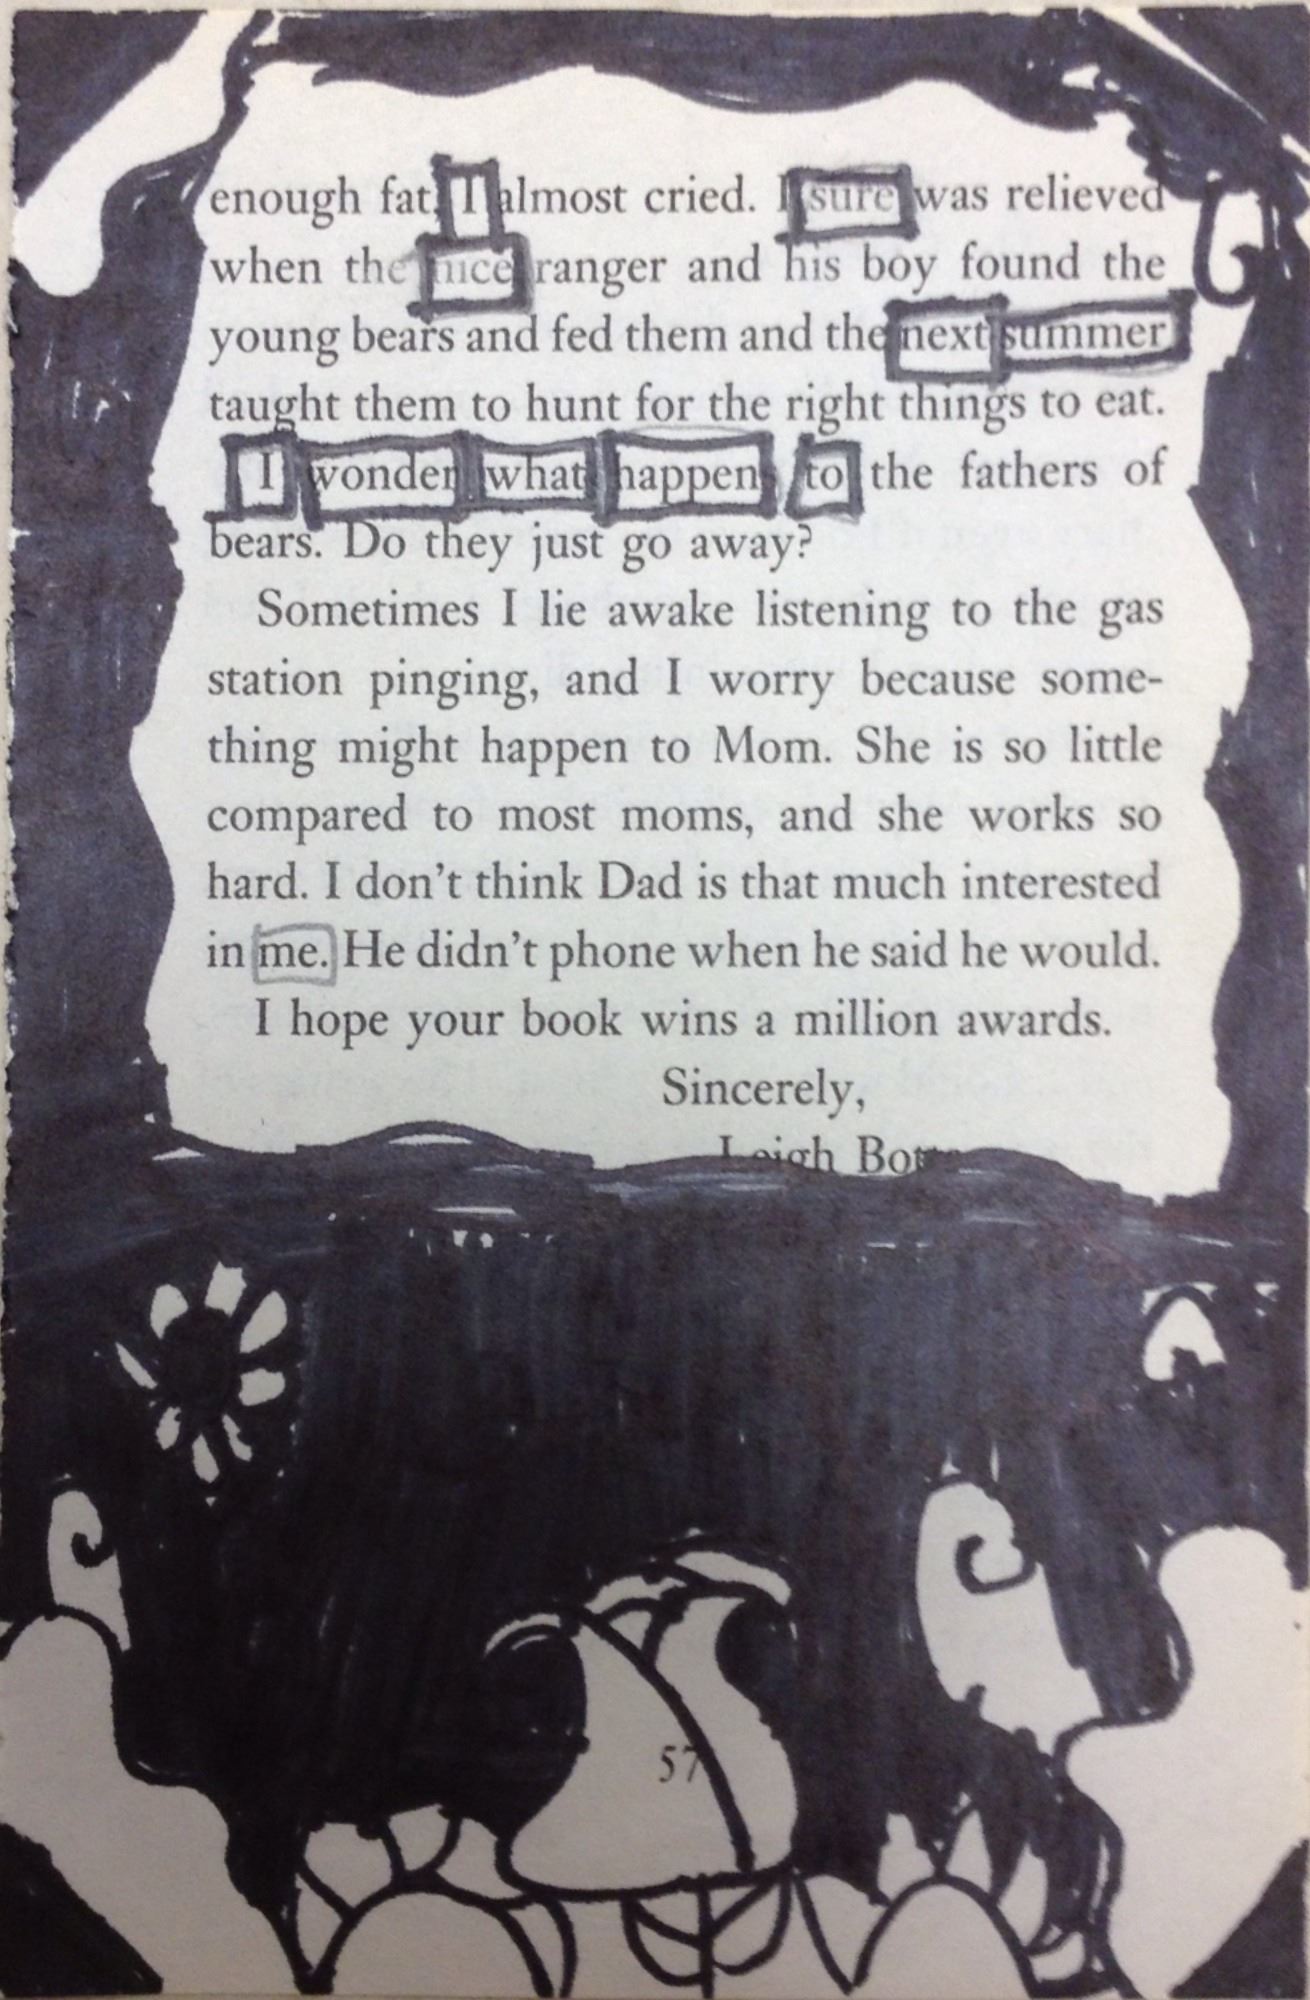 enough fat. I almost cried. I sure was relieved
when the nice ranger and his boy found the
young bears and fed them and the next summer
taught them to hunt for the right things to eat.
I wonder what happens to the fathers of
bears. Do they just go away?
Sometimes I lie awake listening to the gas
station pinging, and I worry because some-
thing might happen to Mom. She is so little
compared to most moms, and she works so
hard. I don't think Dad is that much interested
in me. He didn't phone when he said he would.
I hope your book wins a million awards.
Sincerely,
Leigh
57